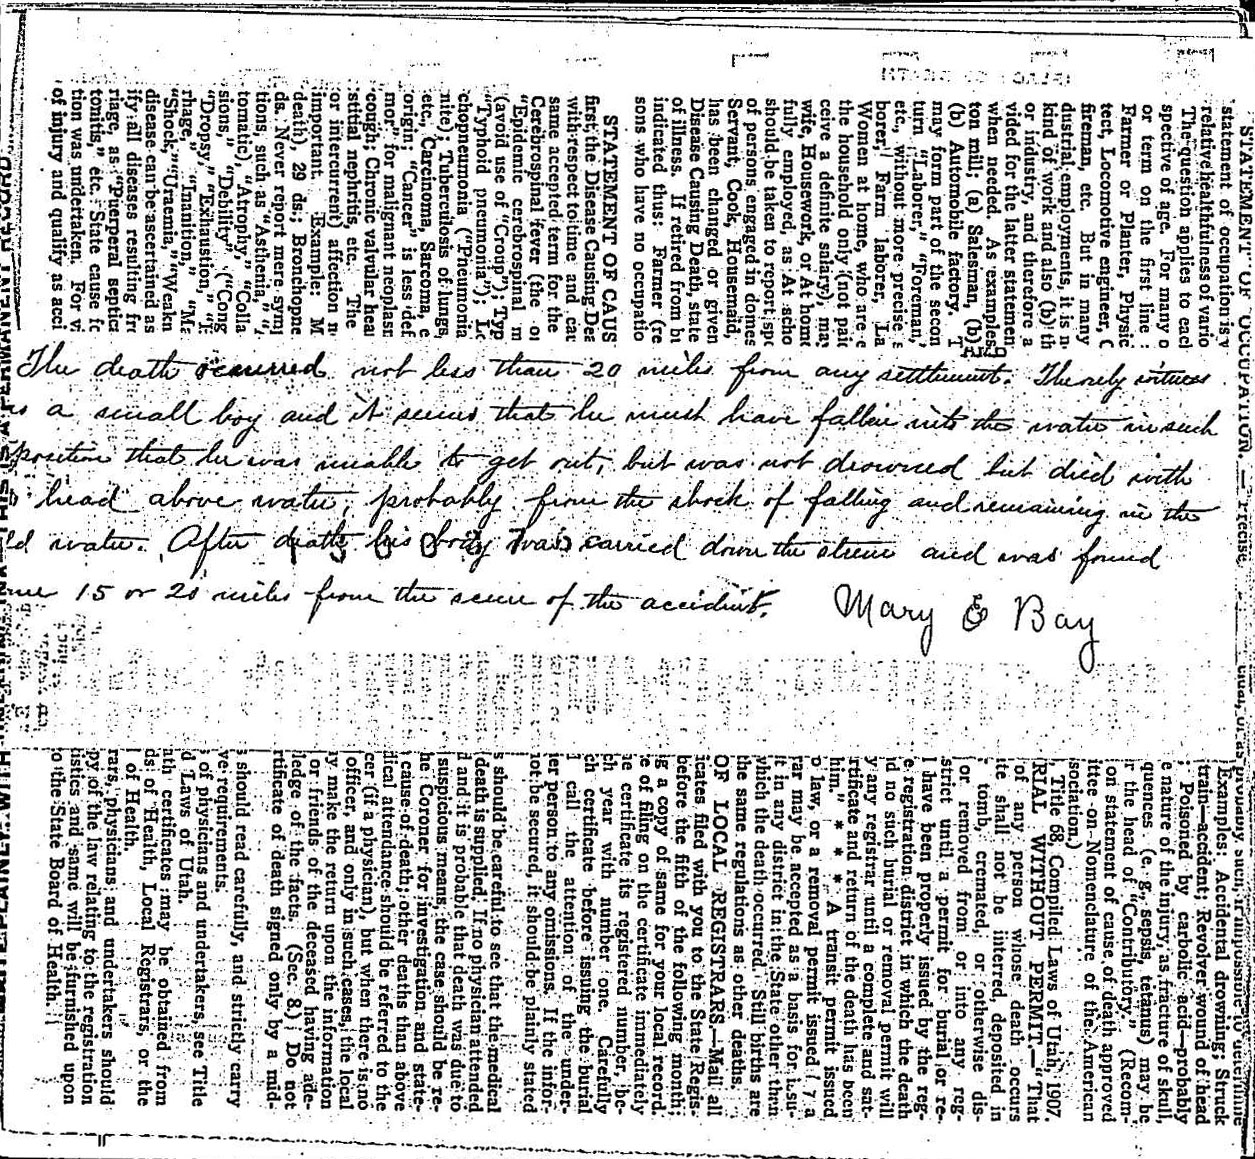 STATEMENT OF OCCUPATION.—Precise
statement of occupation is v
relative healthfulness of vario
The question applies to each
spective of age. For many o
or term on the first line
Farmer or Planter, Physic
tect, Locomotive engineer, C
fireman, etc. But in many
dustrial employments, it is n
kind of work and also (b) th
or industry, and therefore a
vided for the latter statemen
when needed. As examples
ton mill; (a) Salesman, (b)
(b) Automobile factory. T
may form part of the secon
turn "Laborer," "Foreman,"
etc., without more precise s
borer, Farm laborer, La
Women at home, who are e
the household only (not paid
ceive a definite salary), may
wife, Housework, or At home
fully employed, as At scho
should be taken to report sp
of persons engaged in domes
Servant, Cook, Housemaid,
has been changed or given
Disease Causing Death, state
of illness. If retired from bu
indicated thus: Farmer (re
sons who have no occupatio
STATEMENT OF CAUS
first, the Disease Causing Dea
with respect to time and cau
same accepted term for the
Cerebrospinal fever (the o
"Epidemic cerebrospinal m
(avoid use of "Croup"); Typ
"Typhoid pneumonia"); Lo
chopneumonia ("Pneumonia
nite); Tuberculosis of lungs,
etc., Carcinoma, Sarcoma, e
origin; "Cancer" is less def
mor" for malignant neoplasm
cough; Chronic valvular hear
stitial nephritis, etc. The
or intercurrent) affection n
important. Example: M
death), 29 ds.; Bronchopne
ds. Never report mere symp
tions, such as "Asthenia," "
tomatic), "Atrophy," "Colla
sions," "Debility" ("Cong
"Dropsy," "Exhaustion," "H
rhage," "Inanition," "Ma
"Shock," "Uraemia," "Weakn
disease can be ascertained as
ify all diseases resulting fro
riage, as "Puerperal septica
tonitis," etc. State cause fo
tion was undertaken. For vi
of injury and qualify as acci
The death occurred not less than 20 miles from any settlement. The only witness
is a small boy and it seems that he must have fallen into the water in such
position that he was unable to get out, but was not drowned but died with
head above water, probably from the shock of falling and remaining in the
ld water. After death his body was carried down the stream and was found
me 15 or 20 miles from the scene of the accident. Mary E Bay
probably such, if impossible to determine
Examples: Accidental drowning; Struck
train—accident; Revolver wound of head
Poisoned by carbolic acid—probably
e nature of the injury, as fracture of skull,
quences (e. g., sepsis, tetanus) may be
r the head of "Contributory." (Recom-
on statement of cause of death approved
ittee on Nomenclature of the American
sociation.)
Title 68, Compiled Laws of Utah, 1907.
RIAL WITHOUT PERMIT—"That
of any person whose death occurs
te shall not be interred, deposited in
tomb, cremated, or otherwise dis-
or removed from or into any reg-
strict until a permit for burial or re-
l have been properly issued by the reg-
e registration district in which the death
id no such burial or removal permit will
y any registrar until a complete and sat-
rtificate and return of the death has been
him. * * * A transit permit issued
o law, or a removal permit issued by a
rar may be accepted as a basis for issu-
it in any district in the State other than
which the death occurred. Still births are
the same regulations as other deaths.
OF LOCAL REGISTRARS.—Mail all
icates filed with you to the State Regis-
before the fifth of the following month;
g a copy of same for your local record.
e of filing on the certificate immediately
e certificate its registered number, be-
ch year with number one. Carefully
ch certificate before issuing the burial
l call the attention of the under-
er person to any omissions. If the infor-
not be secured, it should be plainly stated
s should be careful to see that the medical
death is supplied. If no physician attended
d and it is probable that death was due to
suspicious means, the case should be re-
he Coroner for investigation and state-
cause of death; other deaths than above
dical attendance should be referred to the
cer (if a physician), but when there is no
officer, and only in such cases, the local
y make the return upon the information
or friends of the deceased having ade-
ledge of the facts. (Sec. 8.) Do not
rtificate of death signed only by a mid-
s should read carefully, and strictly carry
ve requirements.
of physicians and undertakers, see Title
d Laws of Utah.
ath certificates may be obtained from
ds of Health, Local Registrars, or the
of Health.
rars, physicians and undertakers should
py of the law relating to the registration
tistics and same will be furnished upon
o the State Board of Health.